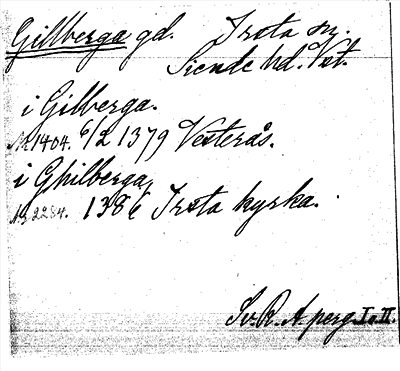 Gillberga gd. Irsta sn.
Siende hd. Vst.
i Gilberga.
N. 1404. 6/2 1379 Vesterås.
i Ghilberga
N. 2284. 1386 Irsta kyrka.
Sv. R. A. perg. I o II.